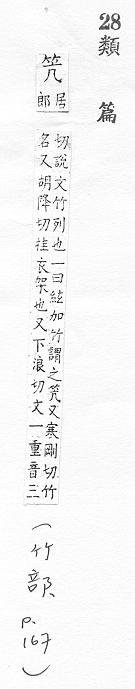 28 類篇
笐
居
郎
切說文竹列也一曰絃加竹謂之笐又寒剛切竹
名又胡降切挂衣架也又下浪切文一重音三
(竹部 p.167)